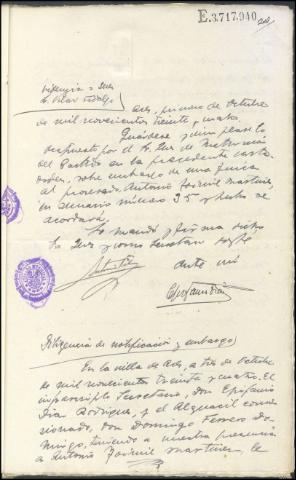 E.3.717.940
Ares, primero de Octubre
de mil novecientos treinta y cuatro.
Guárdese y cumplase lo
dispuesto por el Sr. Juez de
del Partido en la precedente carta
orden, sobre embargo de una finca
al procesado Antonio Martinez,
en sumario número 35 y hecho se
acordará.
Lo mandó y firma dicho
Sr Juez y como Secretario
ante mi
Diligencia de notificación y embargo
En la villa de Ares, a tres de Octubre
de mil novecientos treinta y cuatro. El
infrascripto Secretario, don Epifanio
Diaz Rodriguez, y el Alguacil comi
sionado, don Domingo Ferrero Do
mingo, teniendo a nuestra presencia
a Antonio Martinez, le